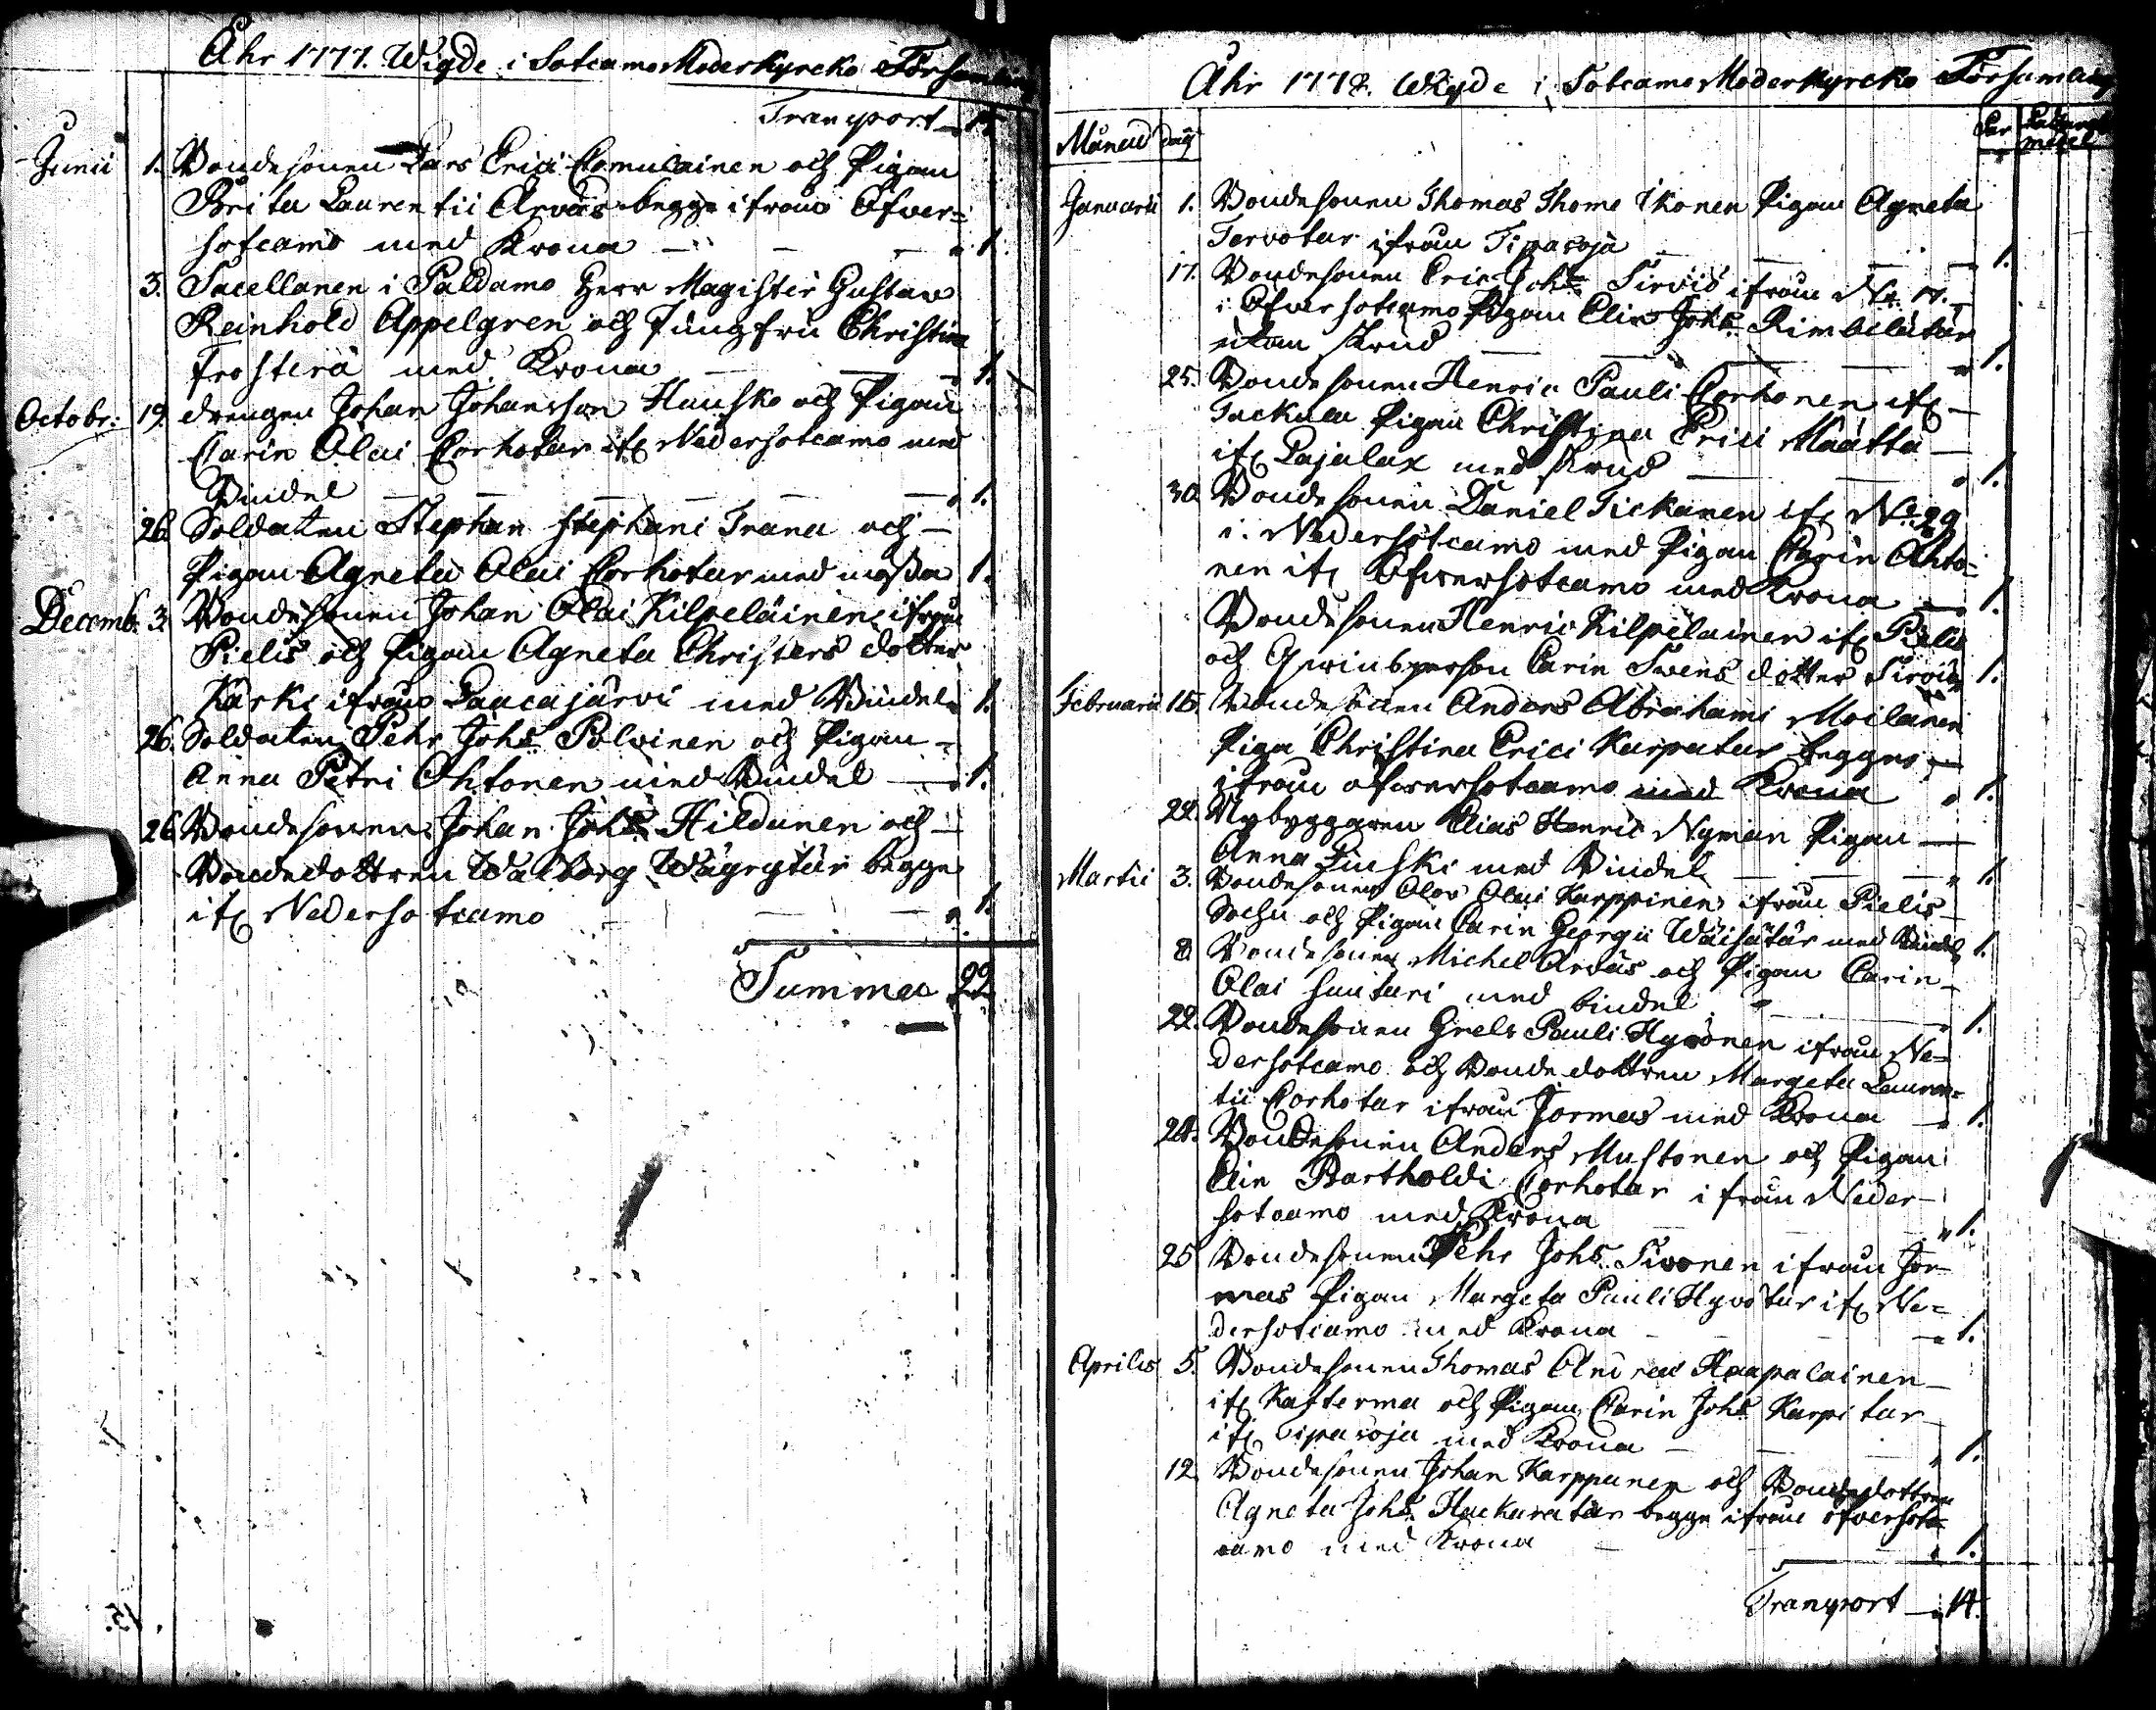 Åhr 1777. Wigde i Sotcamo Moderkyrcko Församling
Transport 14
Junii 1. Bondesonen Lars Erici Comulainen och Pigan
Brita Laurentii Arvas begge ifrån Öfver=
sotcamo med Krona 1.
3. Sacellanen i Paldamo Herr Magister Gustav
Reinhold Appelgren och Jungfru Christina
Frosterä med Krona 1.
Octobr: 19. drengen Johan Johansson Hausko och Pigan
Carin Olai Corhotar if: Nedersotcamo med
Bindel 1.
26. Soldaten Stephan Stephani Trana och
Pigan Agneta Olai Corhotar med mössa 1.
Decemb. 3. Bondesonen Johan Olai Kilpeläinen ifrån
Pielis och Pigan Agneta Christers dotter
Karki ifrån Laucajärvi med Bindel 1.
26. Soldaten Pehr Johs Polvinen och Pigan
Anna Petri Ohtonen med Bindel 1.
26. Bondesonen Johan Johs Hildunen och
Bondedottren Walborg Wäyrytär begge
if: Nedersotcamo 1.
Summa 22
Åhr 1778. Wigde i Sotcamo Moderkyrcko Församling
Månad dag Par
Januarii 1. Bondesonen Thomas Thome Ikonen Pigan Agneta
Tervotar ifrån Tipasoja 1.
17. Bondesonen Eric Johs Sirviö ifrån No 17.
i Öfversotcamo Pigan Elin Johs Rimbilätär
utan skrud 1.
25. Bondesonen Henric Pauli Corhonen if:
Tuckala Pigan Christina Erici Määttä
if: Lajalax med skrud 1.
30. Bondesonen Daniel Tickanen if: No 29
i Nedersotcamo med Pigan Carin Ahto=
nen if: Öfversotcamo med Krona 1.
Bondesonen Henric Kilpelainen if: Pielis
och Qwinsperson Carin Swens dotter Sirviö 1.
Februarii 15. Bondesonen Anders Abrahami Moilanen
Piga Christina Erici Karpatar begges
ifrån öfversotcamo med Krona 1.
22. Nybyggaren Elias Henric Nyman Pigan
Anna Juski med Bindel 1.
Martii 3. Bondesonen Olov Olai Karppinen ifrån Pielis
Sochn och Pigan Carin Georgii Wäisätär med Bindel 1.
8. Bondesonen Michel Arvas och Pigan Carin
Olai huuturi med bindel 1.
22. Bondesonen Grels Pauli Hyvönen ifrån Ne=
dersotcamo och Bondedottren Margeta Lauren=
tii Corhotar ifrån Jormas med Krona 1.
24. Bondesonen Anders Mustonen och Pigan
Elin Bartholdi Corhotar ifrån Neder-
sotcamo med Krona 1.
25 Bondesonen Pehr Johs Sivonen ifrån Jor-
mas Pigan Margeta Pauli Hyvotar if: Ne=
dersotcamo med Krona 1.
Aprilis 5. Bondesonen Thomas Andreas Haapalainen
if: Kafterma och Pigan Carin Johs Karpitar
if: Tipasoja med Krona 1.
12. Bondesonen Johan Karppanen och Bondedottren
Agneta Johs Hackaratar begge ifrån öfversot=
camo med Krona 1.
Transport 14.